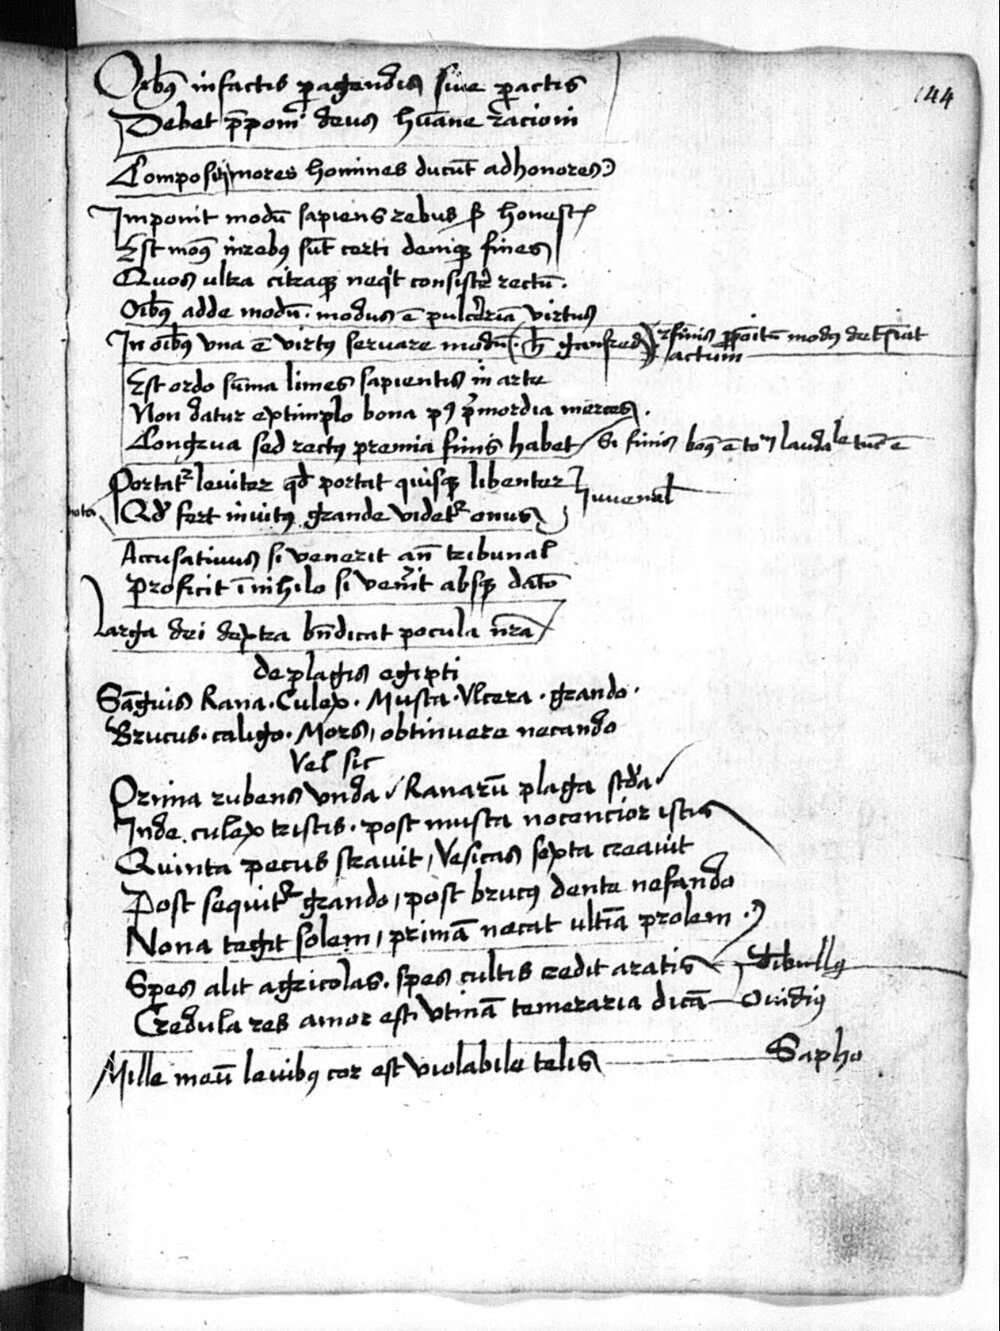 144
Oībꝰ in factis ꝑagendis siue ꝑactis
Debet p̄poni deus hūane racioni
Compositi mores homines ducūt ad honores
Imponit modū sapiens rebus honestis
Est modꝰ in rebꝰ sūt certi deniqꝫ fines
Quos ultra citraqꝫ neqt consistere rectū.
Oībꝰ adde modū. modus ē pulcerīa virtus
In oībꝰ vna ē virtꝰ seruare modū (h ganfred)
finis ꝓpōitū modꝰ det fiāt
actum
Est ordo sūma limes sapientis in arte
Non datur extimplo bona pꝰ pͥmordia merces.
Longua sed rectꝰ premia finis habet
Si finis bonꝰ ē totū laudale tūc ē
Portatʳ leuiter qd portat quisqꝫ libenter
Iuuenal
nota
Qd fert inuitꝰ grande videtʳ onus
Accusatiuus si venerit an̄ tribunal
Proficit ī nihilo si ven̄it absqꝫ dāto
Larga dei dextra bn̄dicat pocula nr̄a
de plagis egipti
Sāguis Rana. Culex. Musca. Vlcera. grando.
Brucus. caligo. Mors, obtinuere necando
Vel sic
Prima rubens vnda, Ranarū plaga scda
Inde culex tristis. post musca nocencior istis
Quinta pecus strauit, Vesicas sexta creauit
Post sequitʳ grando, post brucꝰ dente nefando
Nona tegit solem, primā necat ultīa prolem.
Spes alit agricolas. spes cultis credit aratis
Tibullꝰ
Credula res amor est vtinā temeraria dicā
Ouidiꝰ
Mille meū leuibꝰ cor est violabile telis
Sapho